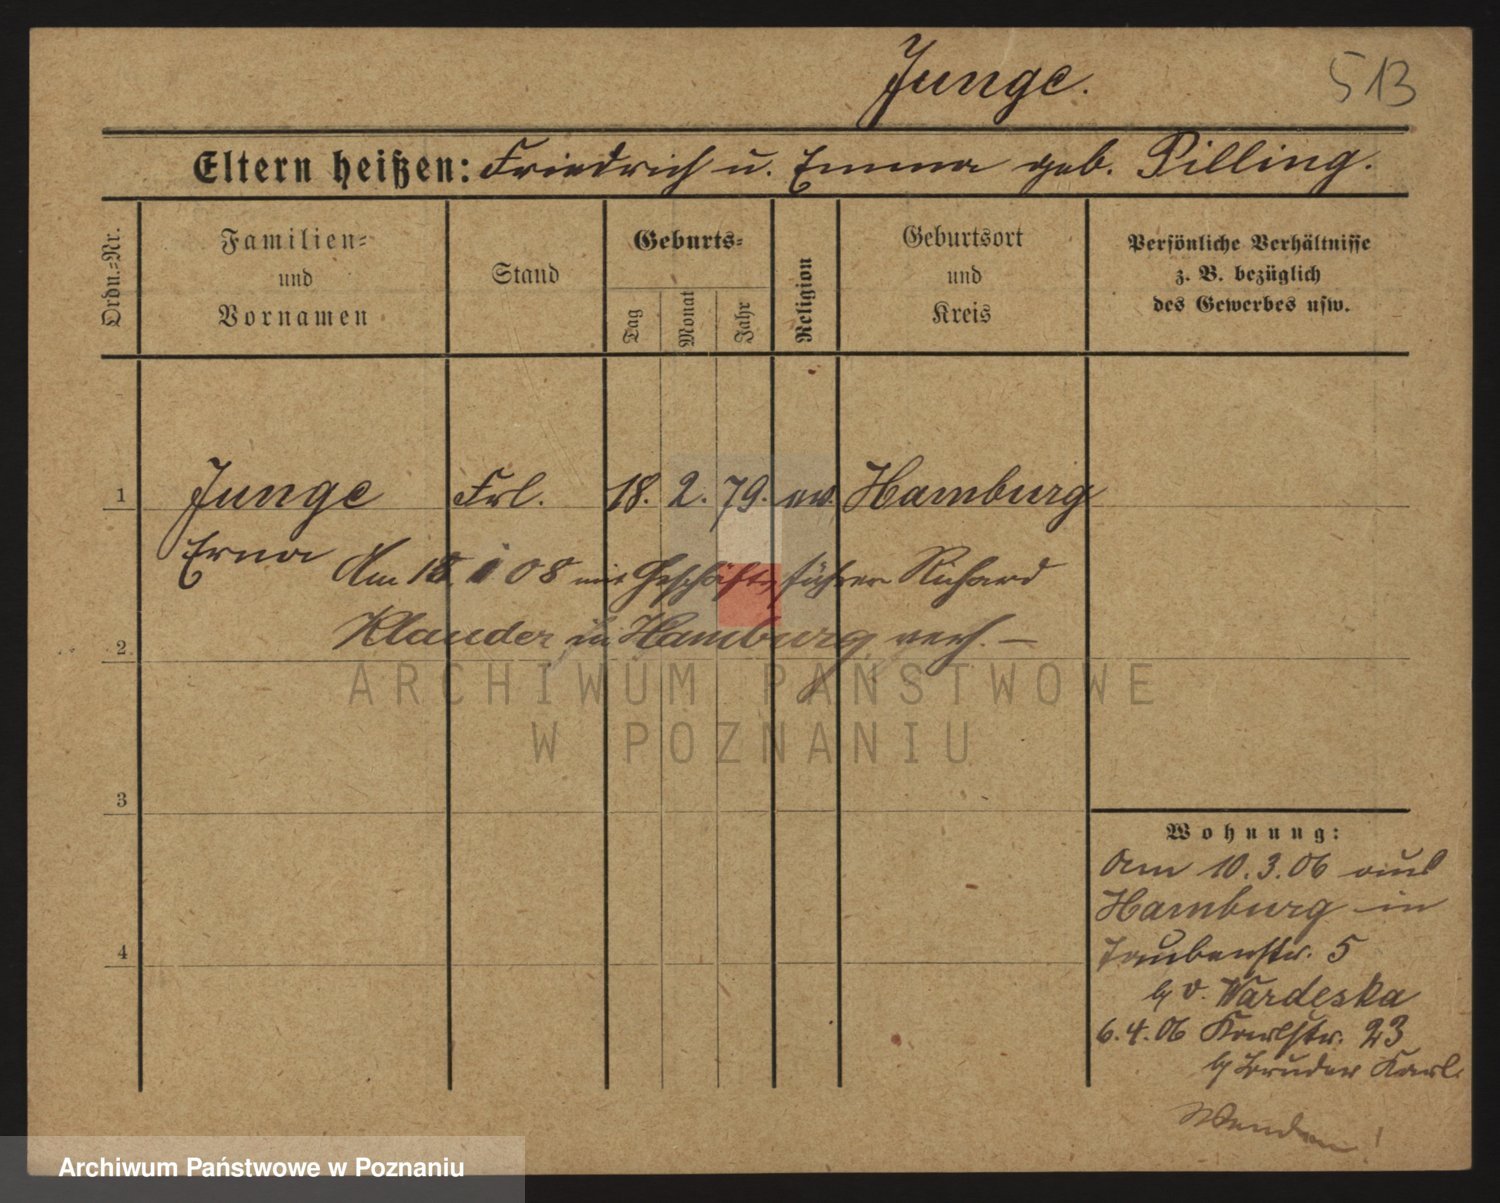 Junge.
513
Eltern heißen: Friedrich u. Emma geb. Pilling.
Ordn.-Nr.
Familien-
und
Vornamen
Stand
Geburts-
Tag
Monat
Jahr
Religion
Geburtsort
und
Kreis
Persönliche Verhältnisse
z. B. bezüglich
des Gewerbes usw.
1 Junge Frl. 18. 2. 79. ev. Hamburg
Erna
Am 18. 1 08 mit Geschäftsführer Richard
Klauder in Hamburg verh. —
2
ARCHIWUM PAŃSTWOWE
W POZNANIU
3
4
Wohnung:
Am 10.3.06 aus
Hamburg in
Taubenstr. 5
b/ v. Wardeska
6.4.06 Karlstr. 23
b/ Bruder Karl.
Wenden!
Archiwum Państwowe w Poznaniu